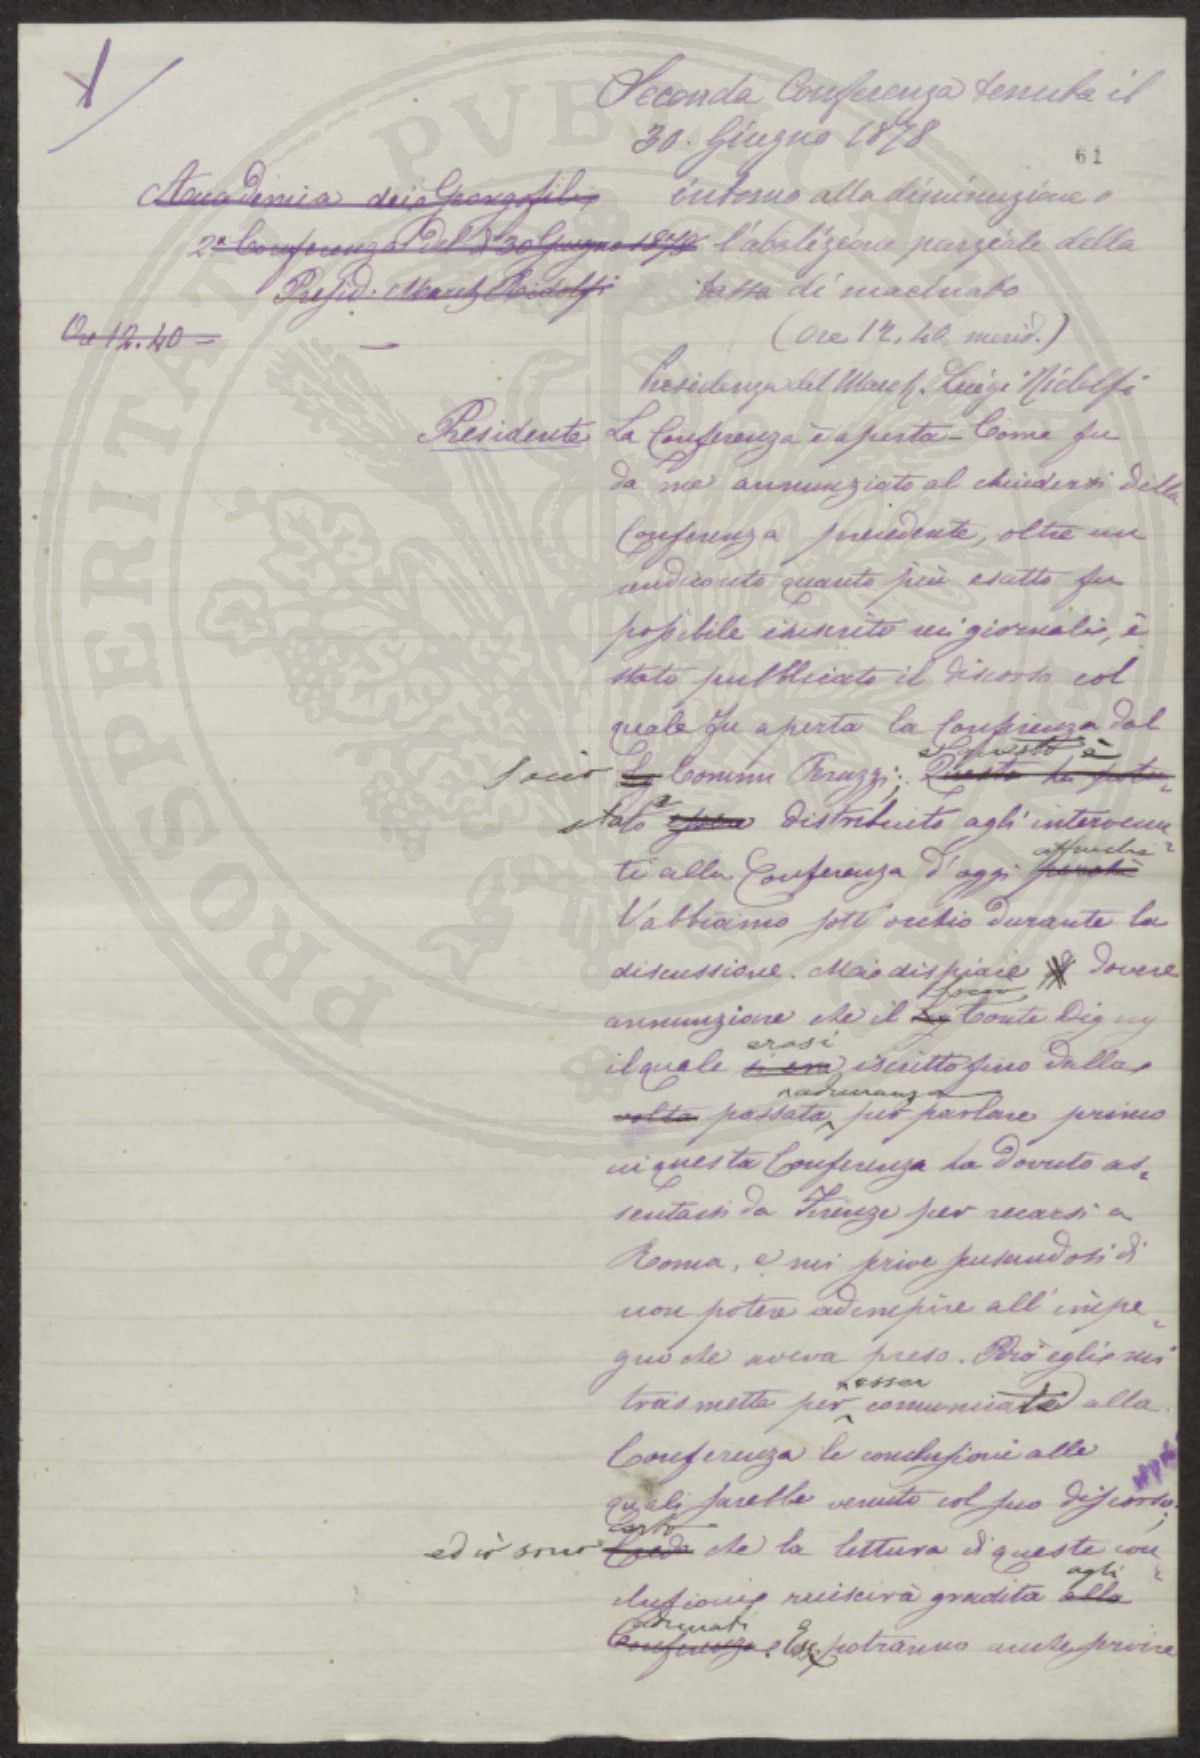 Seconda Conferenza tenuta il
30. Giugno 1878
61
Accademia dei Georgofili
intorno alla diminuzione o
2.a Conferenza del dì 30 Giugno 1878
l'abolizione parziale della
Presid. March Ridolfi
tassa di macinato
Ore 12.40 —
(Ore 12,40 merid.)
Presidenza del March. Luigi Ridolfi
Presidente La Conferenza è aperta – Come fu
da me annunziato al chiudersi della
Conferenza precedente, oltre un
rendiconto quanto più esatto fu
possibile inserito nei giornali, è
stato pubblicato il discorso col
quale fu aperta la Conferenza dal
e questo è
socio Comm Peruzzi; Questo ha potu-
stato distribuito agli interven-
affinchè
ti alla Conferenza d'oggi perchè
l'abbiamo sott'occhio durante la
discussione. Mi dispiace dovere
socio
annunziare che il Sig Conte Digny
erasi
il quale si era iscritto fino dalla
adunanza
volta passata per parlare primo
in questa Conferenza ha dovuto as-
sentarsi da Firenze per recarsi a
Roma, e mi scrive scusandosi di
non potere adempire all'impe-
gno che aveva preso. Però egli mi
esser
trasmette per comunicate alla
Conferenza le conclusioni alle
quali sarebbe venuto col suo discorso;
certo
ed io sono Credo che la lettura di queste con-
agli
clusioni riuscirà gradita alla
adunati
Conferenza. Esse potranno anche servire